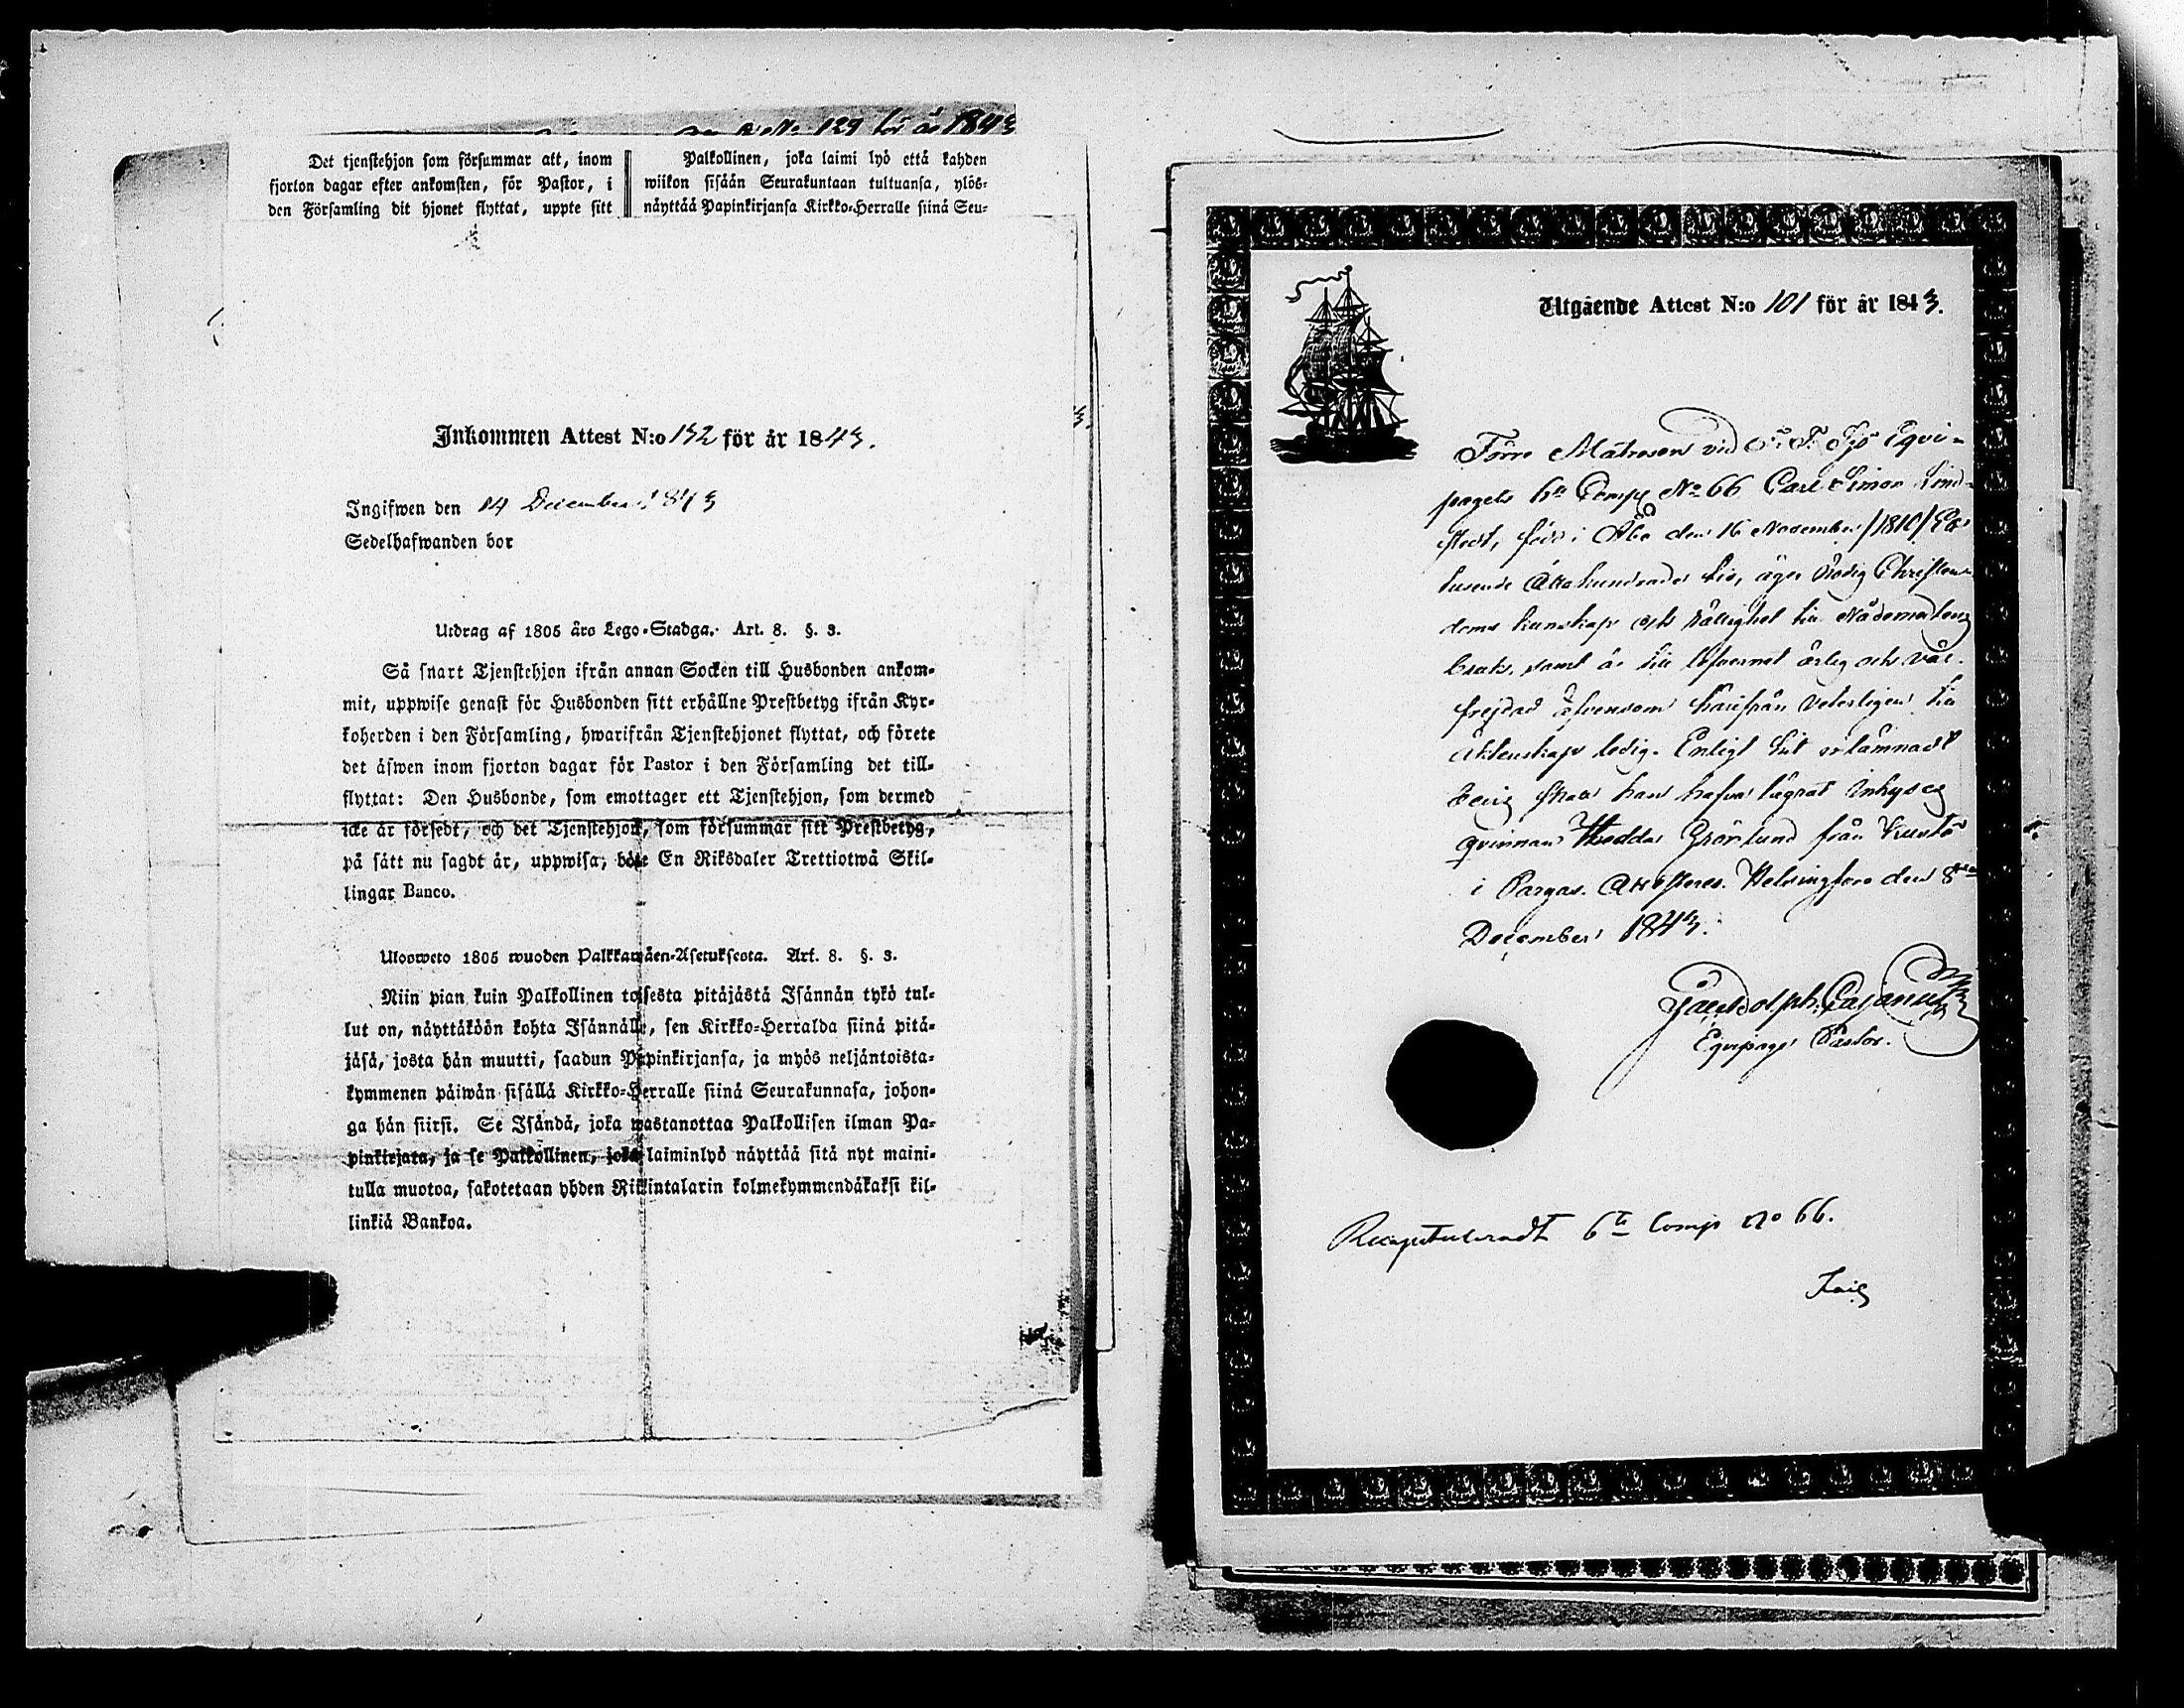 N:o 129 för år 1843
Det tjenstehjon som försummar att, inom
fjorton dagar efter ankomsten, för Pastor, i
den Församling dit hjonet flyttat, uppte sitt
Palkollinen, joka laimi lyö että kahden
wiikon sisään Seurakuntaan tultuansa, ylös-
näyttää Papinkirjansa Kirkko-Herralle siinä Seu-
Inkommen Attest N:o 132 för år 1843.
Ingifwen den 14 December 1843
Sedelhafwanden bor
Utdrag af 1805 års Lego-Stadga. Art. 8. §. 3.
Så snart Tjenstehjon ifrån annan Socken till Husbonden ankom-
mit, uppwise genast för Husbonden sitt erhållne Prestbetyg ifrån Kyr-
koherden i den Församling, hwarifrån Tjenstehjonet flyttat, och förete
det äfwen inom fjorton dagar för Pastor i den Församling det till-
flyttat: Den Husbonde, som emottager ett Tjenstehjon, som dermed
icke är försedt, och det Tjenstehjon, som försummar sitt Prestbetyg,
på sätt nu sagdt är, uppwisa, böte En Riksdaler Trettiotwå Skil-
lingar Banco.
Ulosweto 1805 wuoden Palkkawäen-Asetuksesta. Art. 8. §. 3.
Niin pian kuin Palkollinen toisesta pitäjästä Isännän tykö tul-
lut on, näyttäköön kohta Isännälle, sen Kirkko-Herralda siinä pitä-
jäsä, josta hän muutti, saadun Papinkirjansa, ja myös neljäntoista-
kymmenen päiwän sisällä Kirkko-Herralle siinä Seurakunnasa, johon-
ga hän siirsi. Se Isändä, joka wastanottaa Palkollisen ilman Pa-
pinkirjata, ja se Palkollinen, joka laiminlyö näyttää sitä nyt maini-
tulla muotoa, sakotetaan yhden Rikintalarin kolmekymmendäkaksi kil-
linkiä Bankoa.
Utgående Attest N:o 101 för år 1843.
Förre Matrosen vid F. Sjö Equi-
pagets 6te Comp No 66 Carl Simon Lind-
stedt, född i Åbo den 16 November /1810/ Ett
tusende Åttahundrade tio, äger nödig Christen-
doms kunskap och rättighet till Nådemedlens
bruk, samt är till lefvernet ärlig och väl-
frejdad äfvensom härifrån veterligen till
äktenskap ledig. Enligt hit inlämnadt
bevis skall han hafva lägrat inhyses
qvinnan Hedda Grönlund från Kustö
i Pargas. Attesteres. Helsingfors den 8de
December 1843.
Jac. Adolph. Cajanus
Equipage Pastor.
6te Comp No 66.